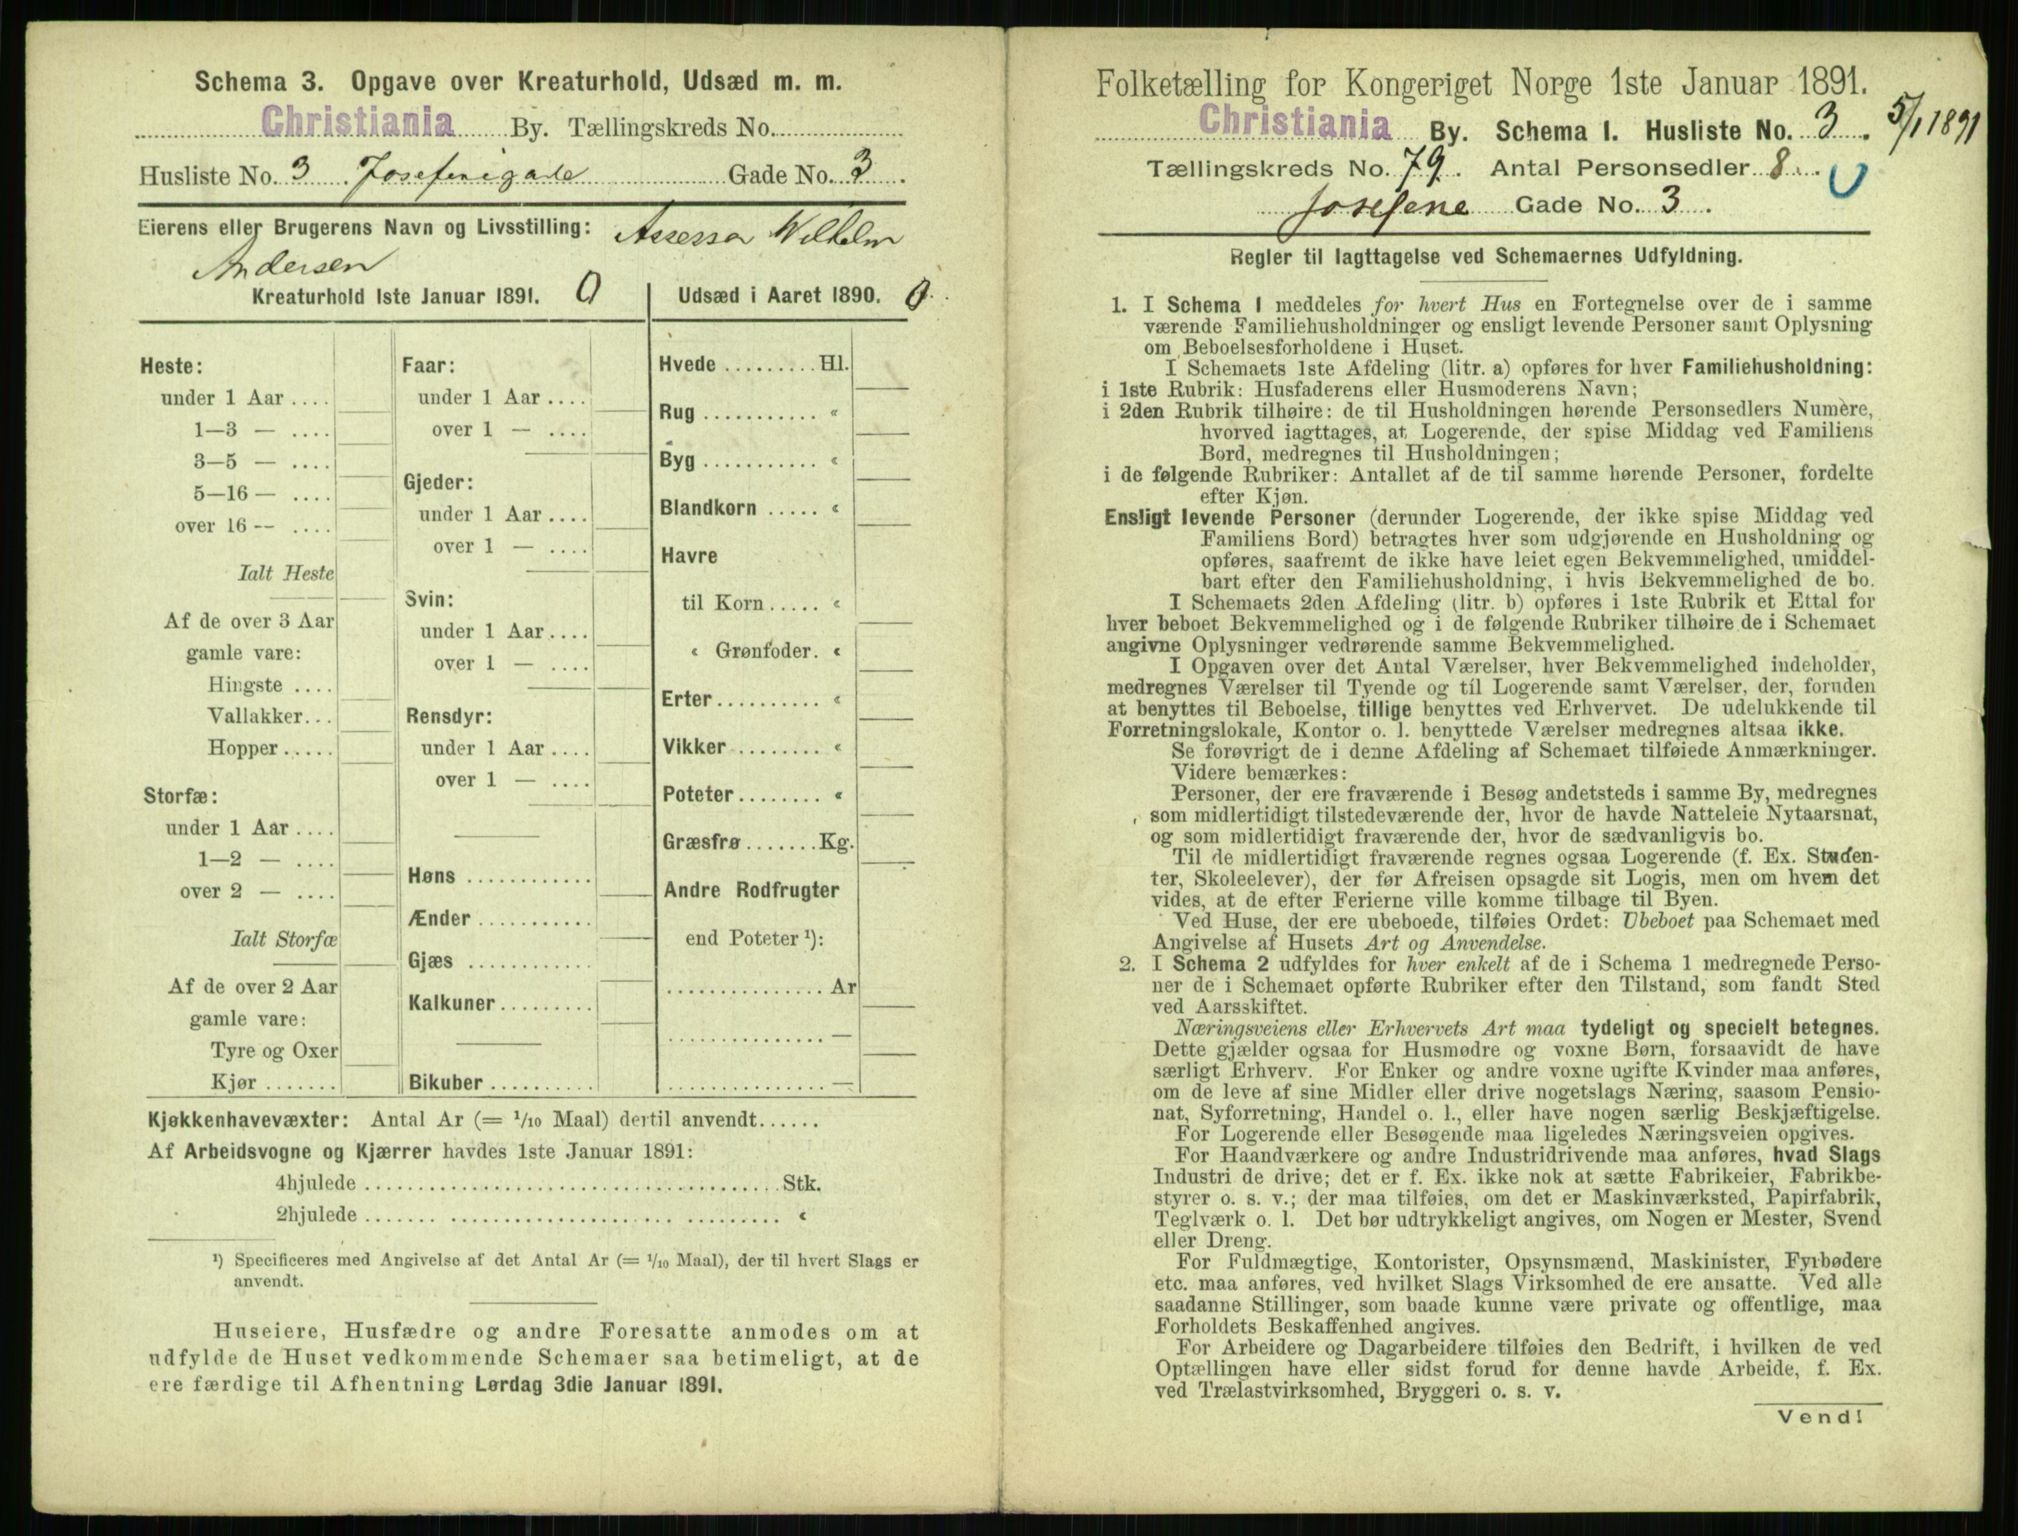 Schema 3. Opgave over Kreaturhold, Udsæd m. m.
Christiania By. Tællingskreds No.
Husliste No. 3 Josefinigade Gade No. 3.
Eierens eller Brugerens Navn og Livsstilling: Assessor Wilhelm
Andersen
Kreaturhold 1ste Januar 1891. 0
Heste:
under 1 Aar ....
1—3 — ....
3—5 — ....
5—16 — ....
over 16 -- ....
Ialt Heste
Af de over 3 Aar
gamle vare:
Hingste ....
Vallakker...
Hopper .....
Storfæ:
under 1 Aar ....
1—2 — ....
over 2 — ....
Ialt Storfæ
Af de over 2 Aar
gamle vare:
Tyre og Oxer
Kjør .......
Faar:
under 1 Aar ....
over 1 — ....
Gjeder:
under 1 Aar ....
over 1 — ....
Svin:
under 1 Aar ....
over 1 — ....
Rensdyr:
under 1 Aar ....
over 1 — ....
Høns ............
Ænder ...........
Gjæs ............
Kalkuner .........
Bikuber ..........
Udsæd i Aaret 1890. 0
Hvede ......... Hl.
Rug ........... «
Byg ........... «
Blandkorn ..... «
Havre
til Korn ..... «
« Grønfoder. «
Erter .......... «
Vikker ........ «
Poteter ........ «
Græsfrø ....... Kg.
Andre Rodfrugter
end Poteter ¹):
............... Ar
............... —
............... —
Kjøkkenhavevæxter: Antal Ar (= 1/10 Maal) dertil anvendt......
Af Arbeidsvogne og Kjærrer havdes 1ste Januar 1891:
4hjulede ....................................... Stk.
2hjulede ....................................... «
¹) Specificeres med Angivelse af det Antal Ar (= 1/10 Maal), der til hvert Slags er
anvendt.
Huseiere, Husfædre og andre Foresatte anmodes om at
udfylde de Huset vedkommende Schemaer saa betimeligt, at de
ere færdige til Afhentning Lørdag 3die Januar 1891.
Folketælling for Kongeriget Norge 1ste Januar 1891.
Christiania By. Schema 1. Husliste No. 3. 5/1 1891
Tællingskreds No. 79. Antal Personsedler 8.
Josefene Gade No. 3.
Regler til Iagttagelse ved Schemaernes Udfyldning.
1. I Schema 1 meddeles for hvert Hus en Fortegnelse over de i samme
værende Familiehusholdninger og ensligt levende Personer samt Oplysning
om Beboelsesforholdene i Huset.
I Schemaets 1ste Afdeling (litr. a) opføres for hver Familiehusholdning:
i 1ste Rubrik: Husfaderens eller Husmoderens Navn;
i 2den Rubrik tilhøire: de til Husholdningen hørende Personsedlers Numere,
hvorved iagttages, at Logerende, der spise Middag ved Familiens
Bord, medregnes til Husholdningen;
i de følgende Rubriker: Antallet af de til samme hørende Personer, fordelte
efter Kjøn.
Ensligt levende Personer (derunder Logerende, der ikke spise Middag ved
Familiens Bord) betragtes hver som udgjørende en Husholdning og
opføres, saafremt de ikke have leiet egen Bekvemmelighed, umiddel-
bart efter den Familiehusholdning, i hvis Bekvemmelighed de bo.
I Schemaets 2den Afdeling (litr. b) opføres i 1ste Rubrik et Ettal for
hver beboet Bekvemmelighed og i de følgende Rubriker tilhøire de i Schemaet
angivne Oplysninger vedrørende samme Bekvemmelighed.
I Opgaven over det Antal Værelser, hver Bekvemmelighed indeholder,
medregnes Værelser til Tyende og til Logerende samt Værelser, der, foruden
at benyttes til Beboelse, tillige benyttes ved Erhvervet. De udelukkende til
Forretningslokale, Kontor o. l. benyttede Værelser medregnes altsaa ikke.
Se forøvrigt de i denne Afdeling af Schemaet tilføiede Anmærkninger.
Videre bemærkes:
Personer, der ere fraværende i Besøg andetsteds i samme By, medregnes
som midlertidigt tilstedeværende der, hvor de havde Natteleie Nytaarsnat,
og som midlertidigt fraværende der, hvor de sædvanligvis bo.
Til de midlertidigt fraværende regnes ogsaa Logerende (f. Ex. Studen-
ter, Skoleelever), der før Afreisen opsagde sit Logis, men om hvem det
vides, at de efter Ferierne ville komme tilbage til Byen.
Ved Huse, der ere ubeboede, tilføies Ordet: Ubeboet paa Schemaet med
Angivelse af Husets Art og Anvendelse.
2. I Schema 2 udfyldes for hver enkelt af de i Schema 1 medregnede Perso-
ner de i Schemaet opførte Rubriker efter den Tilstand, som fandt Sted
ved Aarsskiftet.
Næringsveiens eller Erhvervets Art maa tydeligt og specielt betegnes.
Dette gjælder ogsaa for Husmødre og voxne Børn, forsaavidt de have
særligt Erhverv. For Enker og andre voxne ugifte Kvinder maa anføres,
om de leve af sine Midler eller drive nogetslags Næring, saasom Pensio-
nat, Syforretning, Handel o. l., eller have nogen særlig Beskjæftigelse.
For Logerende eller Besøgende maa ligeledes Næringsveien opgives.
For Haandværkere og andre Industridrivende maa anføres, hvad Slags
Industri de drive; det er f. Ex. ikke nok at sætte Fabrikeier, Fabrikbe-
styrer o. s. v.; der maa tilføies, om det er Maskinværksted, Papirfabrik,
Teglværk o. l. Det bør udtrykkeligt angives, om Nogen er Mester, Svend
eller Dreng.
For Fuldmægtige, Kontorister, Opsynsmænd, Maskinister, Fyrbødere
etc. maa anføres, ved hvilket Slags Virksomhed de ere ansatte. Ved alle
saadanne Stillinger, som baade kunne være private og offentlige, maa
Forholdets Beskaffenhed angives.
For Arbeidere og Dagarbeidere tilføies den Bedrift, i hvilken de ved
Optællingen have eller sidst forud for denne havde Arbeide, f. Ex.
ved Trælastvirksomhed, Bryggeri o. s. v.
Vend!